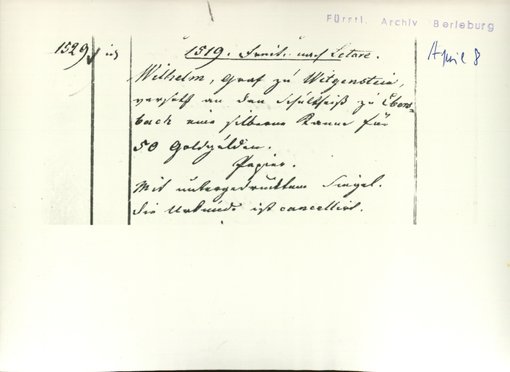 Fürstl. Archiv Berleburg
April 8
1529
1519. Freit. nach Letare.
Wilhelm, Graf zu Witgenstein,
versetzt an den Schultheiß zu Ebers-
bach eine silberne Kanne für
50 Goldgülden.
Papier.
Mit untergedrucktem Siegel.
Die Urkunde ist cancellirt.